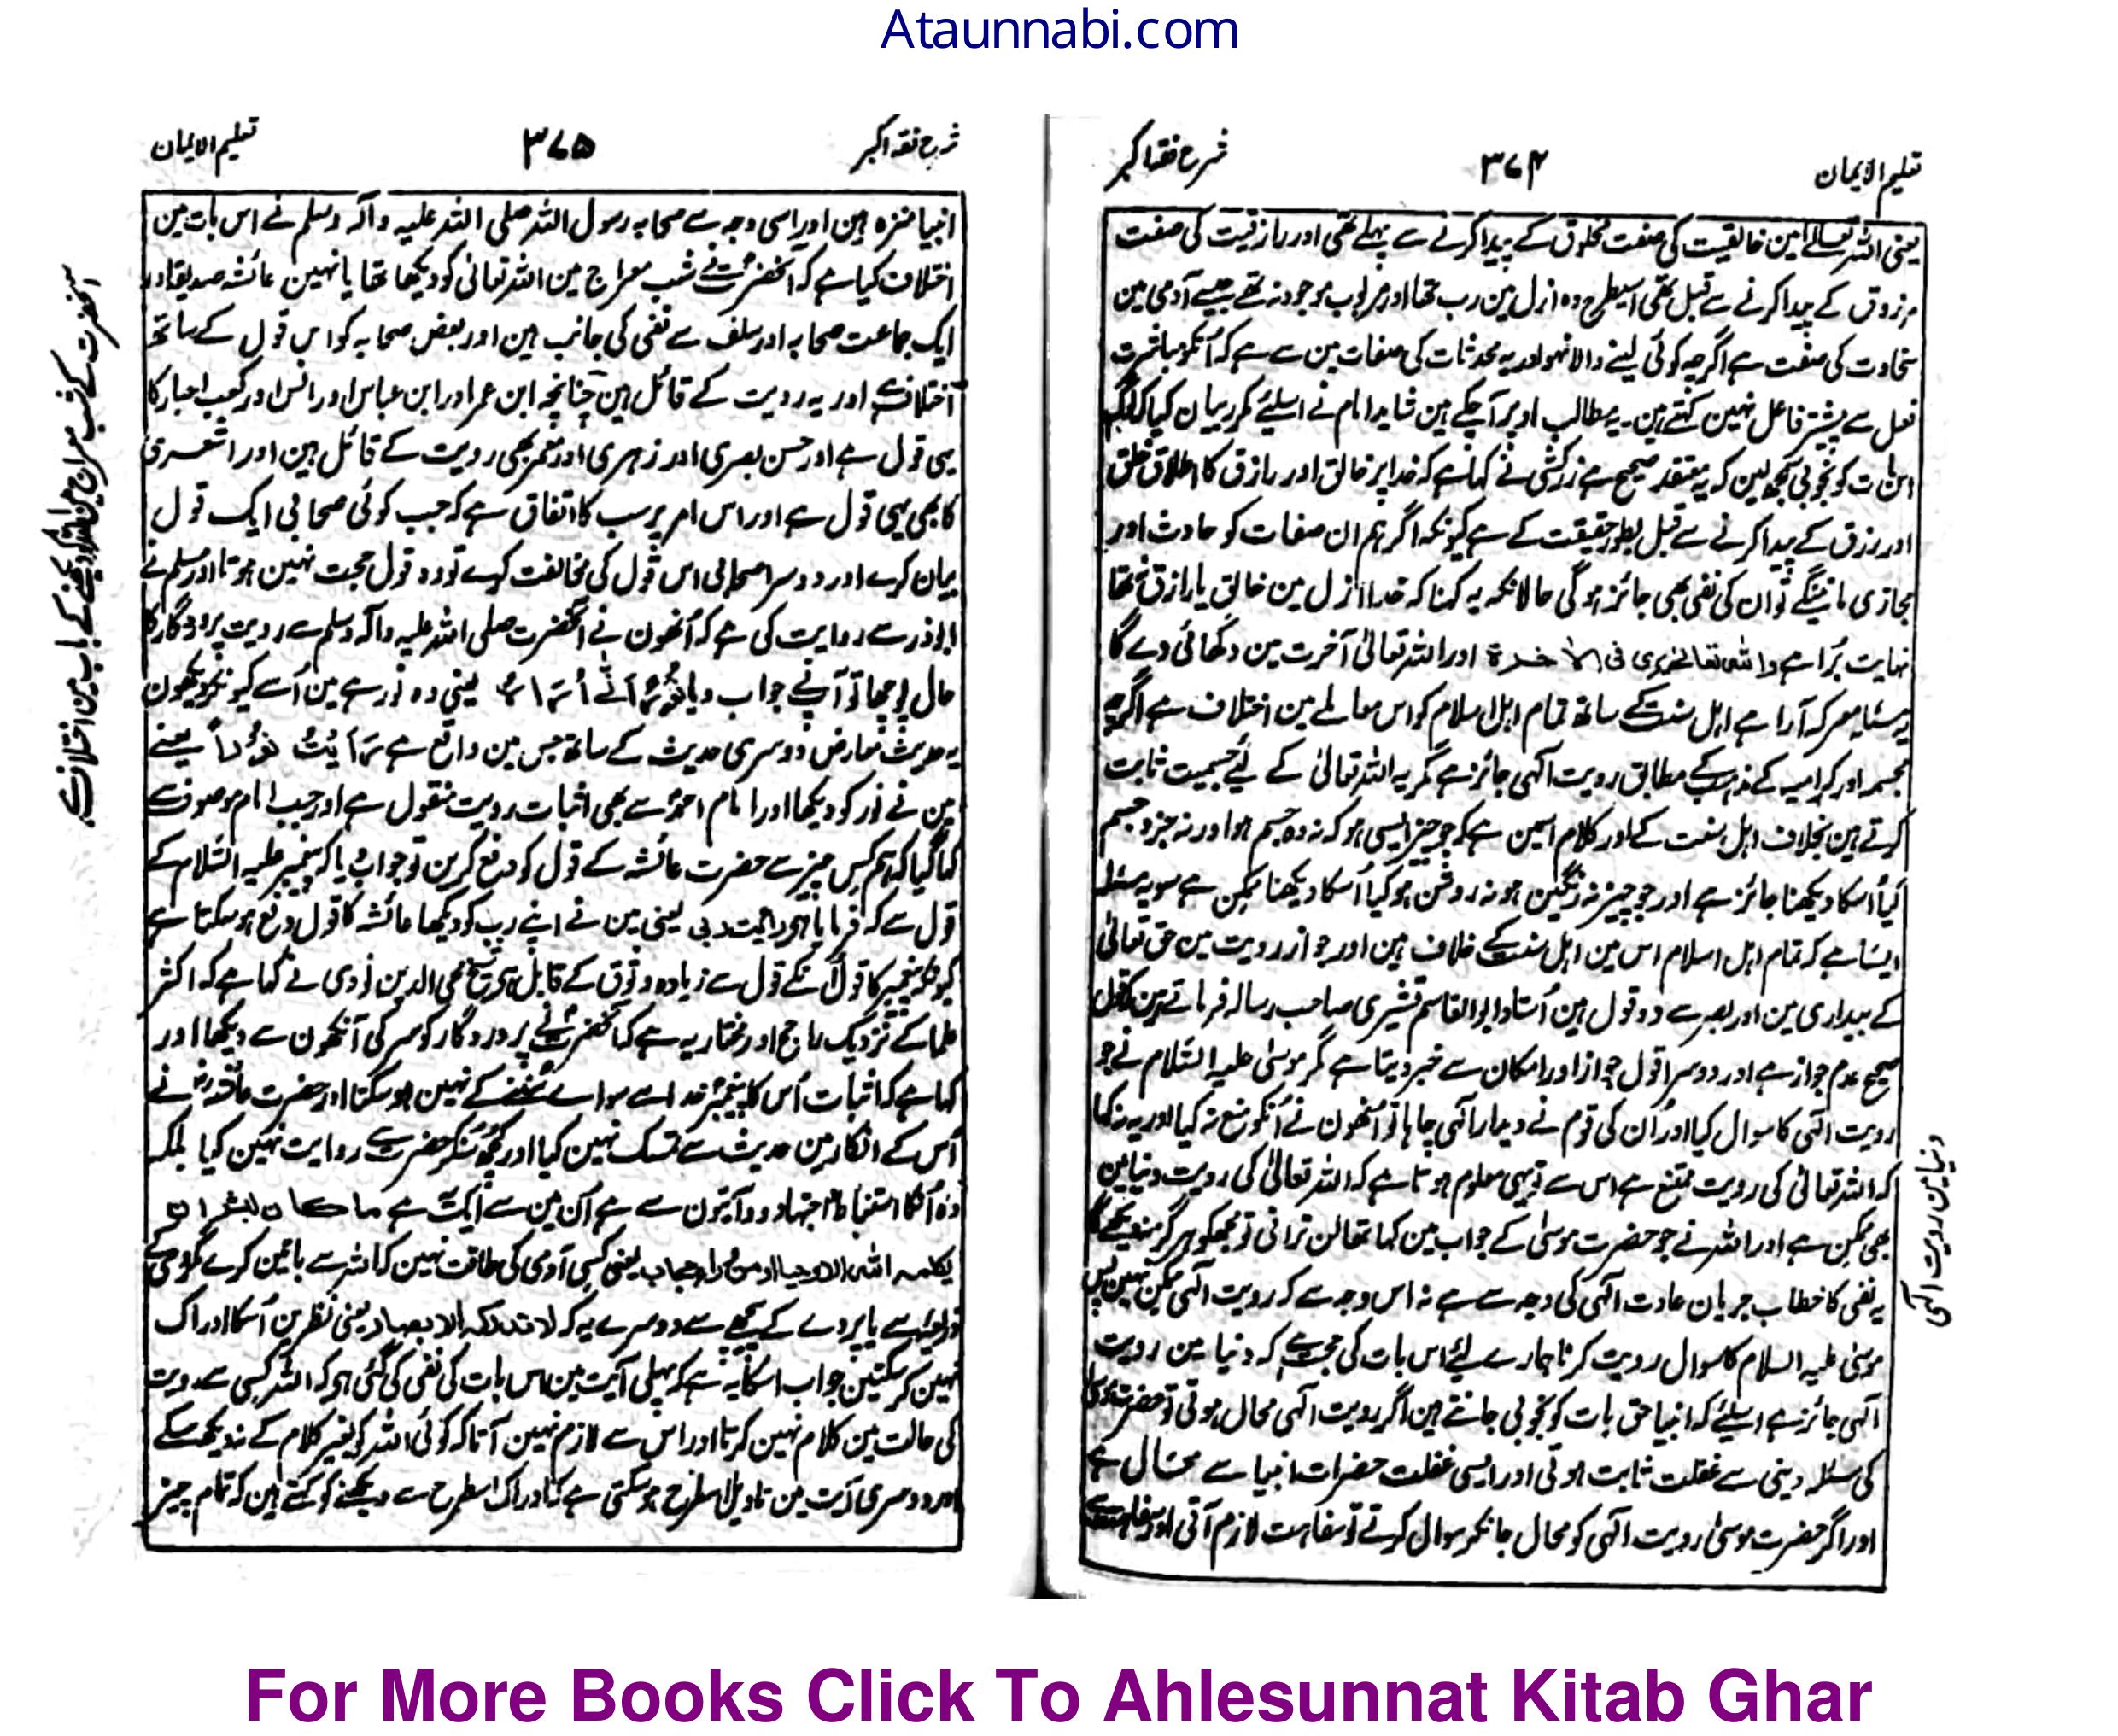 Ataunnabi.com
تعلیم الایمان ۳۷۴ شرح فقہ اکبر
یعنی اللہ تعالےٰ مین خالقیت کی صفت مخلوق کے پیدا کرنے سے پہلے تھی اور رازقیت کی صفت
مرزوق کے پیدا کرنے سے قبل تھی اسیطرح وہ ازل مین رب تھا اور مربوب موجود نہ تھے جیسے آدمی مین
سخاوت کی صفت ہے اگرچہ کوئی لینے والا نہو اور یہ محدثات کی صفات مین سے ہے کہ اُنکو مباشرت
فعل سے پیشتر فاعل نہین کہتے ہین۔ یہ مطالب اوپر آچکے ہین شاید امام نے اسلیئے مکرر بیان کیا کہ لوگ
اس بات کو بخوبی سمجھ لین کہ یہ معتقد صحیح ہے زرکشی نے کہا ہے کہ خدا پر خالق اور رازق کا اطلاق خلق
اور رزق کے پیدا کرنے سے قبل بطور حقیقت کے ہے کیونکہ اگر ہم ان صفات کو حادث اور
مجازی مانینگے تو ان کی نفی بھی جائز ہوگی حالانکہ یہ کہنا کہ خدا ازل مین خالق یا رازق نتھا
نہایت بُرا ہے واللہ تعالیٰ یری فی الاخرۃ اور اللہ تعالیٰ آخرت مین دکھائی دے گا
یہ مسئلہ معرکہ آرا ہے اہل سنت کے ساتھ تمام اہل اسلام کو اس معاملے مین اختلاف ہے اگرچہ
مجسمہ اور کرامیہ کے مذہب کے مطابق رویت الٰہی جائز ہے مگر یہ اللہ تعالیٰ کے لئے جسمیت ثابت
کرتے ہین بخلاف اہل سنت کے اور کلام اسمین ہے کہ جو چیز ایسی ہو کہ نہ وہ جسم ہو اور نہ جزو جسم
کیا اُسکا دیکھنا جائز ہے اور جو چیز نہ رنگین ہو نہ روشن ہو کیا اُسکا دیکھنا ممکن ہے سو یہ مسئلہ
ایسا ہے کہ تمام اہل اسلام اس مین اہل سنت کے خلاف ہین اور جواز رویت مین حق تعالیٰ
کے بیداری مین اور بصر سے دو قول ہین اُستاد ابو القاسم قشیری صاحب رسالہ فرماتے ہین کہ قول
صحیح عدم جواز ہے اور دوسرا قول جواز اور امکان سے خبر دیتا ہے مگر موسیٰ علیہ السّلام نے جو
رویت الٰہی کا سوال کیا اور اُن کی قوم نے دیدار الٰہی چاہا تو اُنھون نے اُنکو منع نہ کیا اور یہ نہ کہا
کہ اللہ تعالیٰ کی رویت ممتنع ہے اس سے تو یہی معلوم ہوتا ہے کہ اللہ تعالیٰ کی رویت دنیا مین
بھی ممکن ہے اور اللہ نے جو حضرت موسیٰ کے جواب مین کہا تھا لن ترانی تو مجھکو ہرگز نہ دیکھے گا
یہ نفی کا خطاب جریان عادت الٰہی کی وجہ سے ہے نہ اس وجہ سے کہ رویت الٰہی ممکن نہین پس
موسیٰ علیہ السلام کا سوال رویت کرنا ہمارے لئے اس بات کی حجت ہے کہ دنیا مین رویت
الٰہی جائز ہے اسلیئے کہ انبیا حق بات کو بخوبی جانتے ہین اگر رویت الٰہی محال ہوتی تو حضرت موسیٰ
کی مسئلہ دینی سے غفلت ثابت ہوتی اور ایسی غفلت حضرات انبیا سے محال ہے
اور اگر حضرت موسیٰ رویت الٰہی کو محال جانکر سوال کرتے تو سفاہت لازم آتی اور سفاہت سے
دنیا مین رویت الٰہی
شرح فقہ اکبر ۳۷۵ تعلیم الایمان
انبیا منزہ ہین اور اسی وجہ سے صحابہ رسول اللہ صلی اللہ علیہ وآلہ وسلم نے اس بات مین
اختلاف کیا ہے کہ آنحضرتؐ نے شب معراج مین اللہ تعالیٰ کو دیکھا تھا یا نہین عائشہ صدیقہ اور
ایک جماعت صحابہ اور سلف سے نفی کی جانب ہین اور بعض صحابہ کو اس قول کے ساتھ
اختلاف ہے اور یہ رویت کے قائل ہین چنانچہ ابن عمر اور ابن عباس اور انس اور کعب احبار کا
یہی قول ہے اور حسن بصری اور زہری اور معمر بھی رویت کے قائل ہین اور اشعری
کا بھی یہی قول ہے اور اس امر پر سب کا اتفاق ہے کہ جب کوئی صحابی ایک قول
بیان کرے اور دوسرا صحابی اس قول کی مخالفت کرے تو وہ قول حجت نہین ہوتا اور مسلم نے
ابوذر سے روایت کی ہے کہ اُنھون نے آنحضرت صلی اللہ علیہ وآلہ وسلم سے رویت پروردگار کا
حال پوچھا تو آپنے جواب دیا نُوْرٌ اَنّٰے اُرَاہُ یعنی وہ نور ہے مین اُسے کیونکر دیکھون
یہ حدیث معارض دوسری حدیث کے ساتھ جس مین واقع ہے رَأَیْتُ نُوْرًا یعنے
مین نے نور کو دیکھا اور امام احمدؒ سے بھی اثبات رویت منقول ہے اور جب امام موصوف سے
کہا گیا کہ ہم کس چیز سے حضرت عائشہ کے قول کو دفع کرین تو جواب دیا کہ پیغمبر علیہ السّلام کے
قول سے کہ فرمایا ہے رایت ربی یعنی مین نے اپنے رب کو دیکھا عائشہ کا قول دفع ہو سکتا ہے
کیونکہ پیغمبر کا قول اُنکے قول سے زیادہ وثوق کے قابل ہے شیخ محی الدین نووی نے کہا ہے کہ اکثر
علما کے نزدیک راجح اور مختار یہ ہے کہ آنحضرتؐ نے پروردگار کو سر کی آنکھون سے دیکھا اور
کہا ہے کہ اثبات اُس کا پیغمبر خدا سے سواے سُننے کے نہین ہو سکتا اور حضرت عائشہؓ نے
اُس کے انکار مین حدیث سے تمسک نہین کیا اور کچھ سُنکر حضرت سے روایت نہین کیا بلکہ
وہ اُنکا استنباط و اجتہاد دو آیتون سے ہے اُن مین سے ایک یہ ہے ما کان لبشر ان
یکلمہ اللہ الا وحیا او من وراء حجاب یعنی کسی آدمی کی طاقت نہین کہ اللہ سے باتین کرے مگر وحی کے
ذریعہ سے یا پردے کے پیچھے سے دوسرے یہ کہ لا تدرکہ الابصار یعنی نظرین اُسکا ادراک
نہین کر سکتین جواب اسکا یہ ہے کہ پہلی آیت مین اس بات کی نفی کی گئی ہے کہ اللہ کسی سے رویت
کی حالت مین کلام نہین کرتا اور اس سے لازم نہین آتا کہ کوئی اللہ کو بغیر کلام کے نہ دیکھ سکے
اور دوسری آیت مین تاویل اسطرح ہو سکتی ہے کہ ادراک اسطرح سے دیکھنے کو کہتے ہین کہ تمام چیز
آنحضرت کے شب معراج مین اللہ کو دیکھنے کے باب مین اختلاف ہے
For More Books Click To Ahlesunnat Kitab Ghar